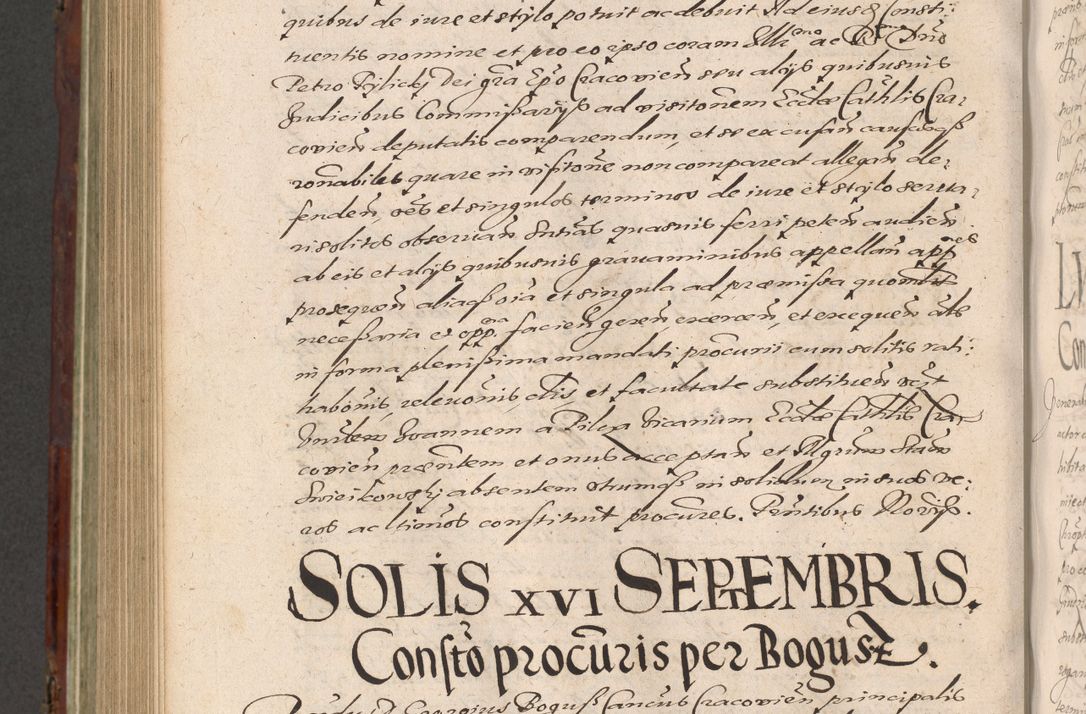 quibus de iure et stylo potuit ac debuit Ad eiusq Consti:
tuentis nomine et pro eo ipso coram Illmo ac Rmo Dno
Petro Tylicky Dei gra Epo Cracovien seu alijs quibusuis
Judicibus Commissarijs ad visitonem Eccliae Cathlis Cra-
covien deputatis comparendum, et se excusan causasq
ronabiles quare in visitone non compareat allegan de-
fenden, oes et singulos terminos de iure et stylo serua-
ri solitos obseruan Sntias quasuis ferri peten audien
ab eis et alijs quibusuis grauaminibus appellan appnes
prosequen aliaq oia et singula ad praemissa quomlt
necessaria et oppna facien geren, exercen, et exequen als
in forma plenissima mandati procurii cum solitis rati:
habonis, releuonis, clis, et facultate substituen
Joannem a Pilca Vicarium Eccliae Cathlis Cra-
covien praentem et onus acceptan et Mgrum Stan
Swieikowskj absentem utrumq in solidum in suos ve:
ros ac ltimos constituit procures. Pntibus Noriis.
SOLIS XVI SEPTEMBRIS.
Constō procūris per Bogusz.
Georgius Bogusz Cancus Cracovien principalis